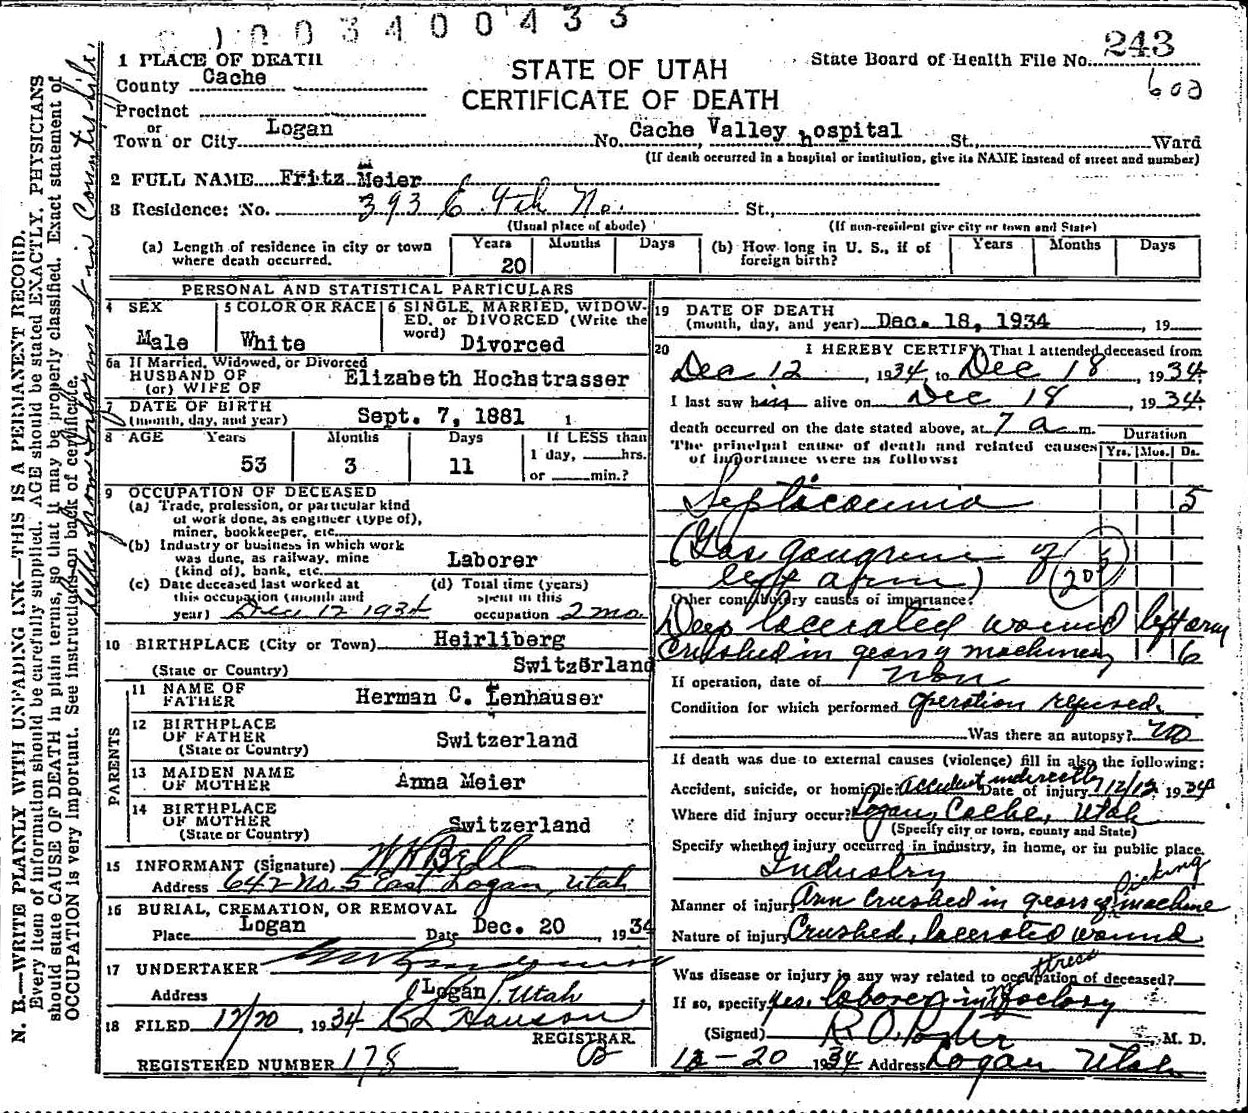 1003400433
243
State Board of Health File No.
602
STATE OF UTAH
CERTIFICATE OF DEATH
1 PLACE OF DEATH
County Cache
Precinct
or
Town or City Logan No. Cache Valley hospital St., Ward
(If death occurred in a hospital or institution, give its NAME instead of street and number)
2 FULL NAME Fritz Meier
3 Residence: No. 393 E. 4th No. St.,
(Usual place of abode) (If non-resident give city or town and State)
(a) Length of residence in city or town where death occurred. Years 20 Months Days
(b) How long in U. S., if of foreign birth? Years Months Days
PERSONAL AND STATISTICAL PARTICULARS
4 SEX Male
5 COLOR OR RACE White
6 SINGLE, MARRIED, WIDOWED, or DIVORCED (Write the word) Divorced
6a If Married, Widowed, or Divorced
HUSBAND OF
(or) WIFE OF Elizabeth Hochstrasser
7 DATE OF BIRTH
(month, day, and year) Sept. 7, 1881 1
8 AGE Years 53 Months 3 Days 11 If LESS than 1 day, hrs. or min.?
9 OCCUPATION OF DECEASED
(a) Trade, profession, or particular kind
of work done, as engineer (type of),
miner, bookkeeper, etc.
(b) Industry or business in which work
was done, as railway, mine
(kind of), bank, etc. Laborer
(c) Date deceased last worked at
this occupation (month and
year) Dec 12 1934
(d) Total time (years)
spent in this
occupation 2 mo
10 BIRTHPLACE (City or Town) Heirliberg
(State or Country) Switzerland
PARENTS
11 NAME OF
FATHER Herman C. Lenhauser
12 BIRTHPLACE
OF FATHER
(State or Country) Switzerland
13 MAIDEN NAME
OF MOTHER Anna Meier
14 BIRTHPLACE
OF MOTHER
(State or Country) Switzerland
15 INFORMANT (Signature) W H Bell
Address 642 No. 5 East Logan, Utah
16 BURIAL, CREMATION, OR REMOVAL
Place Logan Date Dec. 20, 1934
17 UNDERTAKER
Address Logan, Utah
18 FILED 12/20, 1934
REGISTRAR
REGISTERED NUMBER 178
19 DATE OF DEATH
(month, day, and year) Dec. 18, 1934, 19
20 I HEREBY CERTIFY, That I attended deceased from
Dec 12, 1934, to Dec 18, 1934.
I last saw him alive on Dec 18, 1934.
death occurred on the date stated above, at 7 a m.
The principal cause of death and related causes
of importance were as follows:
Duration
Yrs. Mos. Ds.
Septicaemia 5
(Gas gangrene of
left arm)
Other contributory causes of importance:
Deep lacerated wound left arm
Crushed in gears of machinery 6
If operation, date of Non
Condition for which performed operation refused.
Was there an autopsy? no
If death was due to external causes (violence) fill in also the following:
Accident, suicide, or homicide? Accident indirectly Date of injury 12/12 1934
Where did injury occur? Logan, Cache, Utah
(Specify city or town, county and State)
Specify whether injury occurred in industry, in home, or in public place.
Industry
Manner of injury Arm Crushed in gears of Picking machine
Nature of injury Crushed, lacerated wound
Was disease or injury in any way related to occupation of deceased?
If so, specify yes. laborer in factory
(Signed) M. D.
12-20 1934 Address Logan Utah
N. B.—WRITE PLAINLY WITH UNFADING INK—THIS IS A PERMANENT RECORD.
Every item of information should be carefully supplied. AGE should be stated EXACTLY. PHYSICIANS
should state CAUSE OF DEATH in plain terms, so that it may be properly classified. Exact statement of
OCCUPATION is very important. See instructions on back of certificate.